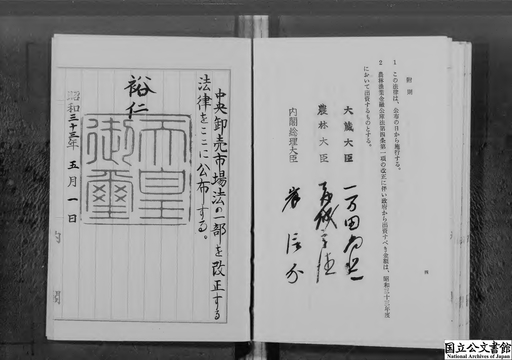 附則
1 この法律は、公布の日から施行する。
2 農林漁業金融公庫法第四条第一項の改正に伴い政府から出資すべき金額は、昭和三十三年度
において出資するものとする。
大蔵大臣 一万田尚登
農林大臣 赤城宗徳
内閣総理大臣 岸信介
四
中央卸売市場法の一部を改正する
法律をここに公布する。
裕仁
天皇
御璽
昭和三十三年五月一日
国立公文書館
National Archives of Japan